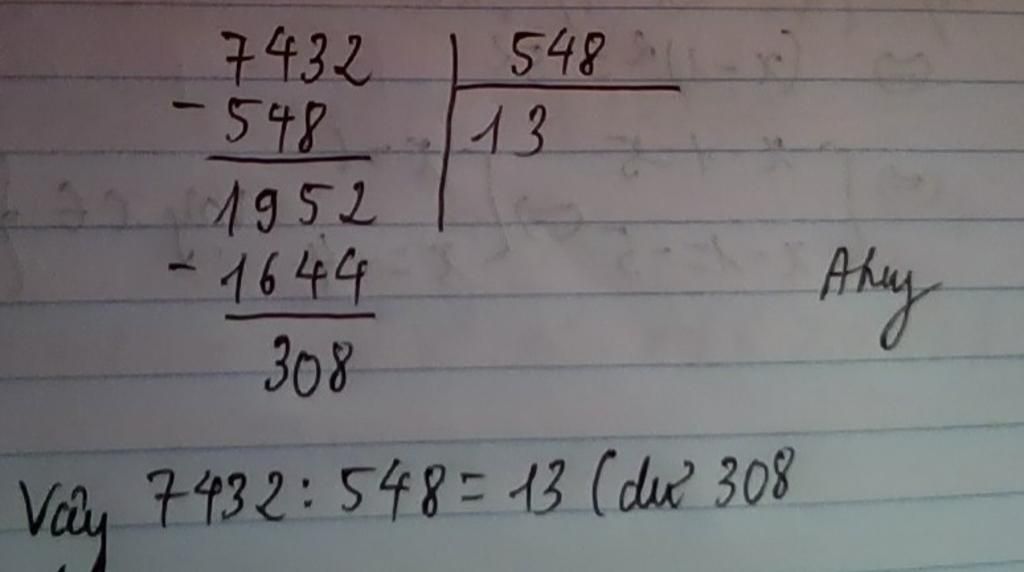 7432 548
- 548 13
1952
- 1644
308
Ahuy
Vậy 7432 : 548 = 13 (dư 308